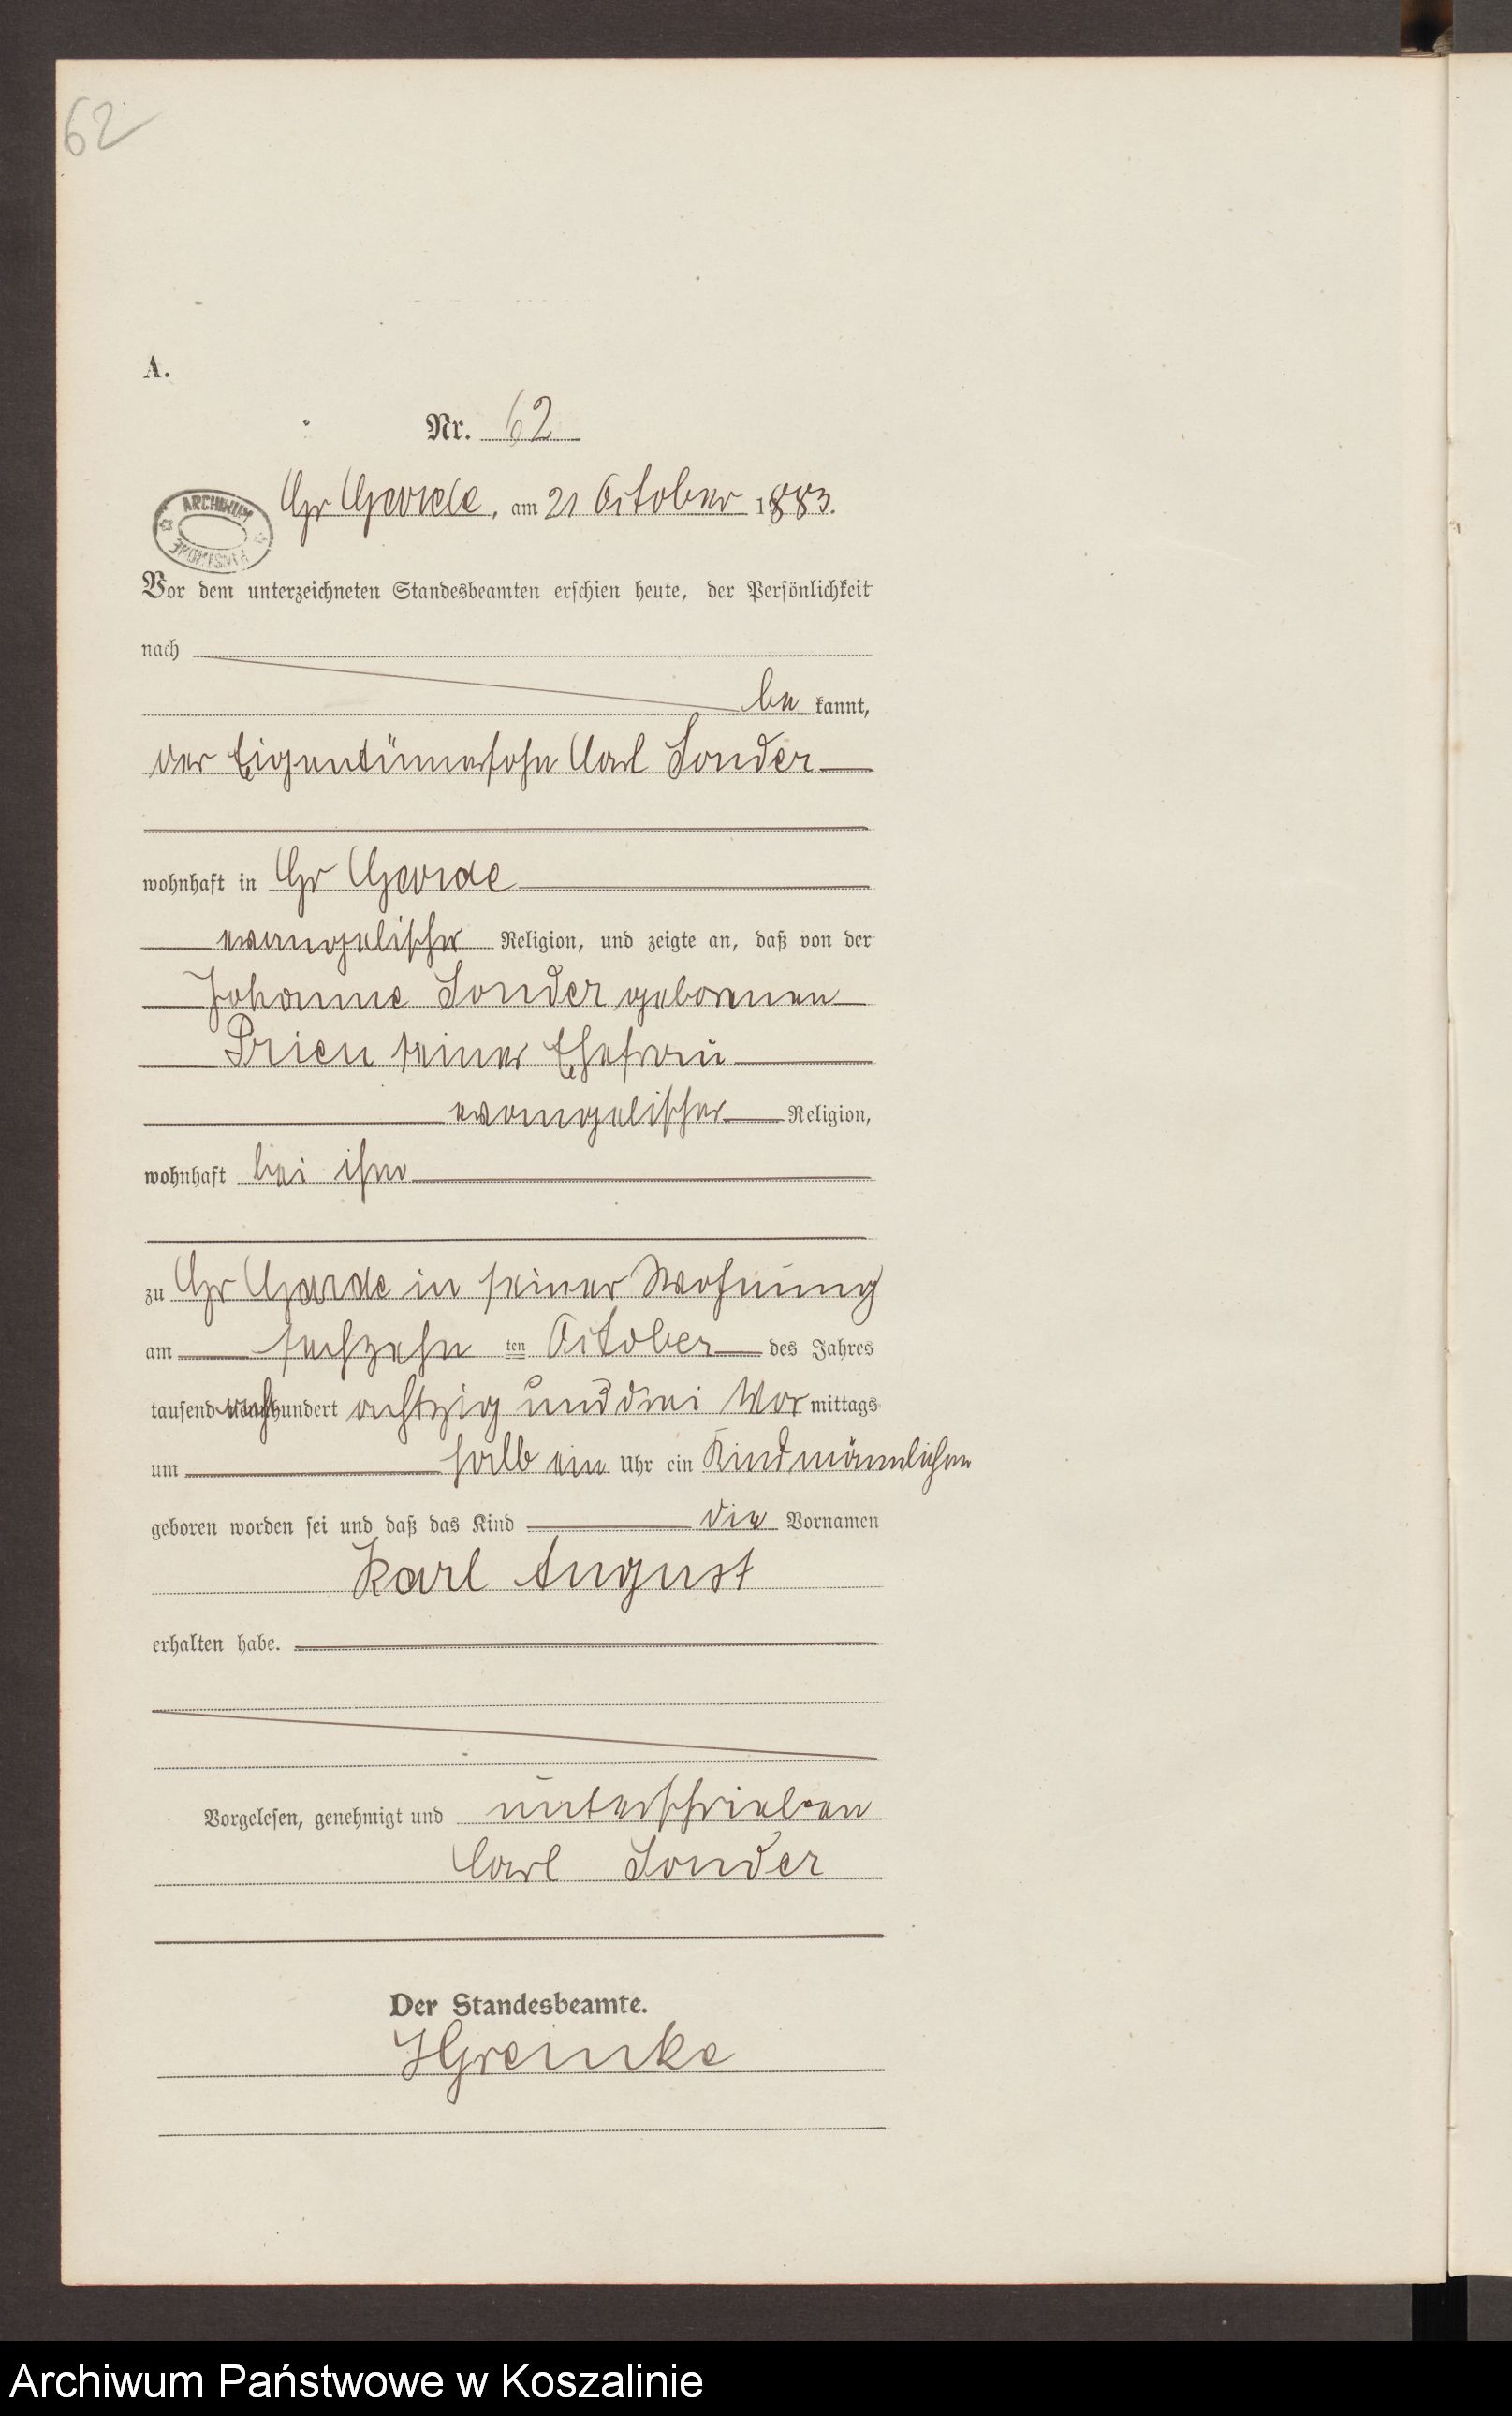 62
A.
Nr. 62
ARCHIWUM
PAŃSTWOWE
Gr Garde, am 21 October 1883.
Vor dem unterzeichneten Standesbeamten erschien heute, der Persönlichkeit
nach
be kannt,
der Eigentümersohn Carl Sonder
wohnhaft in Gr Garde
evangelischer Religion, und zeigte an, daß von der
Johanne Sonder geborenen
Prien seiner Ehefrau
evangelischer Religion,
wohnhaft bei ihm
zu Gr Garde in seiner Wohnung
am sechzehn ten October des Jahres
tausend acht hundert achtzig und drei Vor mittags
um halb ein Uhr ein Kind männlichen
geboren worden sei und daß das Kind die Vornamen
Karl August
erhalten habe.
Vorgelesen, genehmigt und unterschrieben
Carl Sonder
Der Standesbeamte.
HGreinke
Archiwum Państwowe w Koszalinie